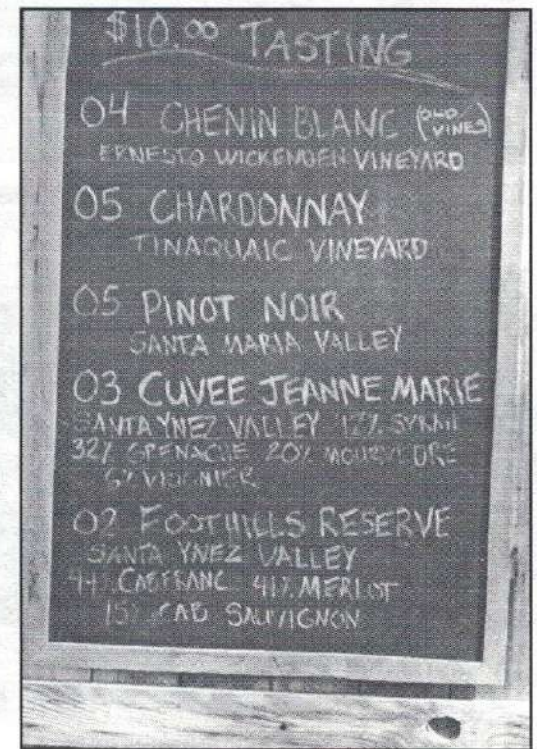 $10.00 TASTING
04 CHENIN BLANC (OLD VINES)
ERNESTO WICKENDEN VINEYARD
05 CHARDONNAY
TINAQUAIC VINEYARD
05 PINOT NOIR
SANTA MARIA VALLEY
03 CUVEE JEANNE MARIE
SANTA YNEZ VALLEY SYRAH
32% GRENACHE 20% MOURVEDRE
VIOGNIER
02 FOOTHILLS RESERVE
SANTA YNEZ VALLEY
44% CAB FRANC 41% MERLOT
15% CAB SAUVIGNON